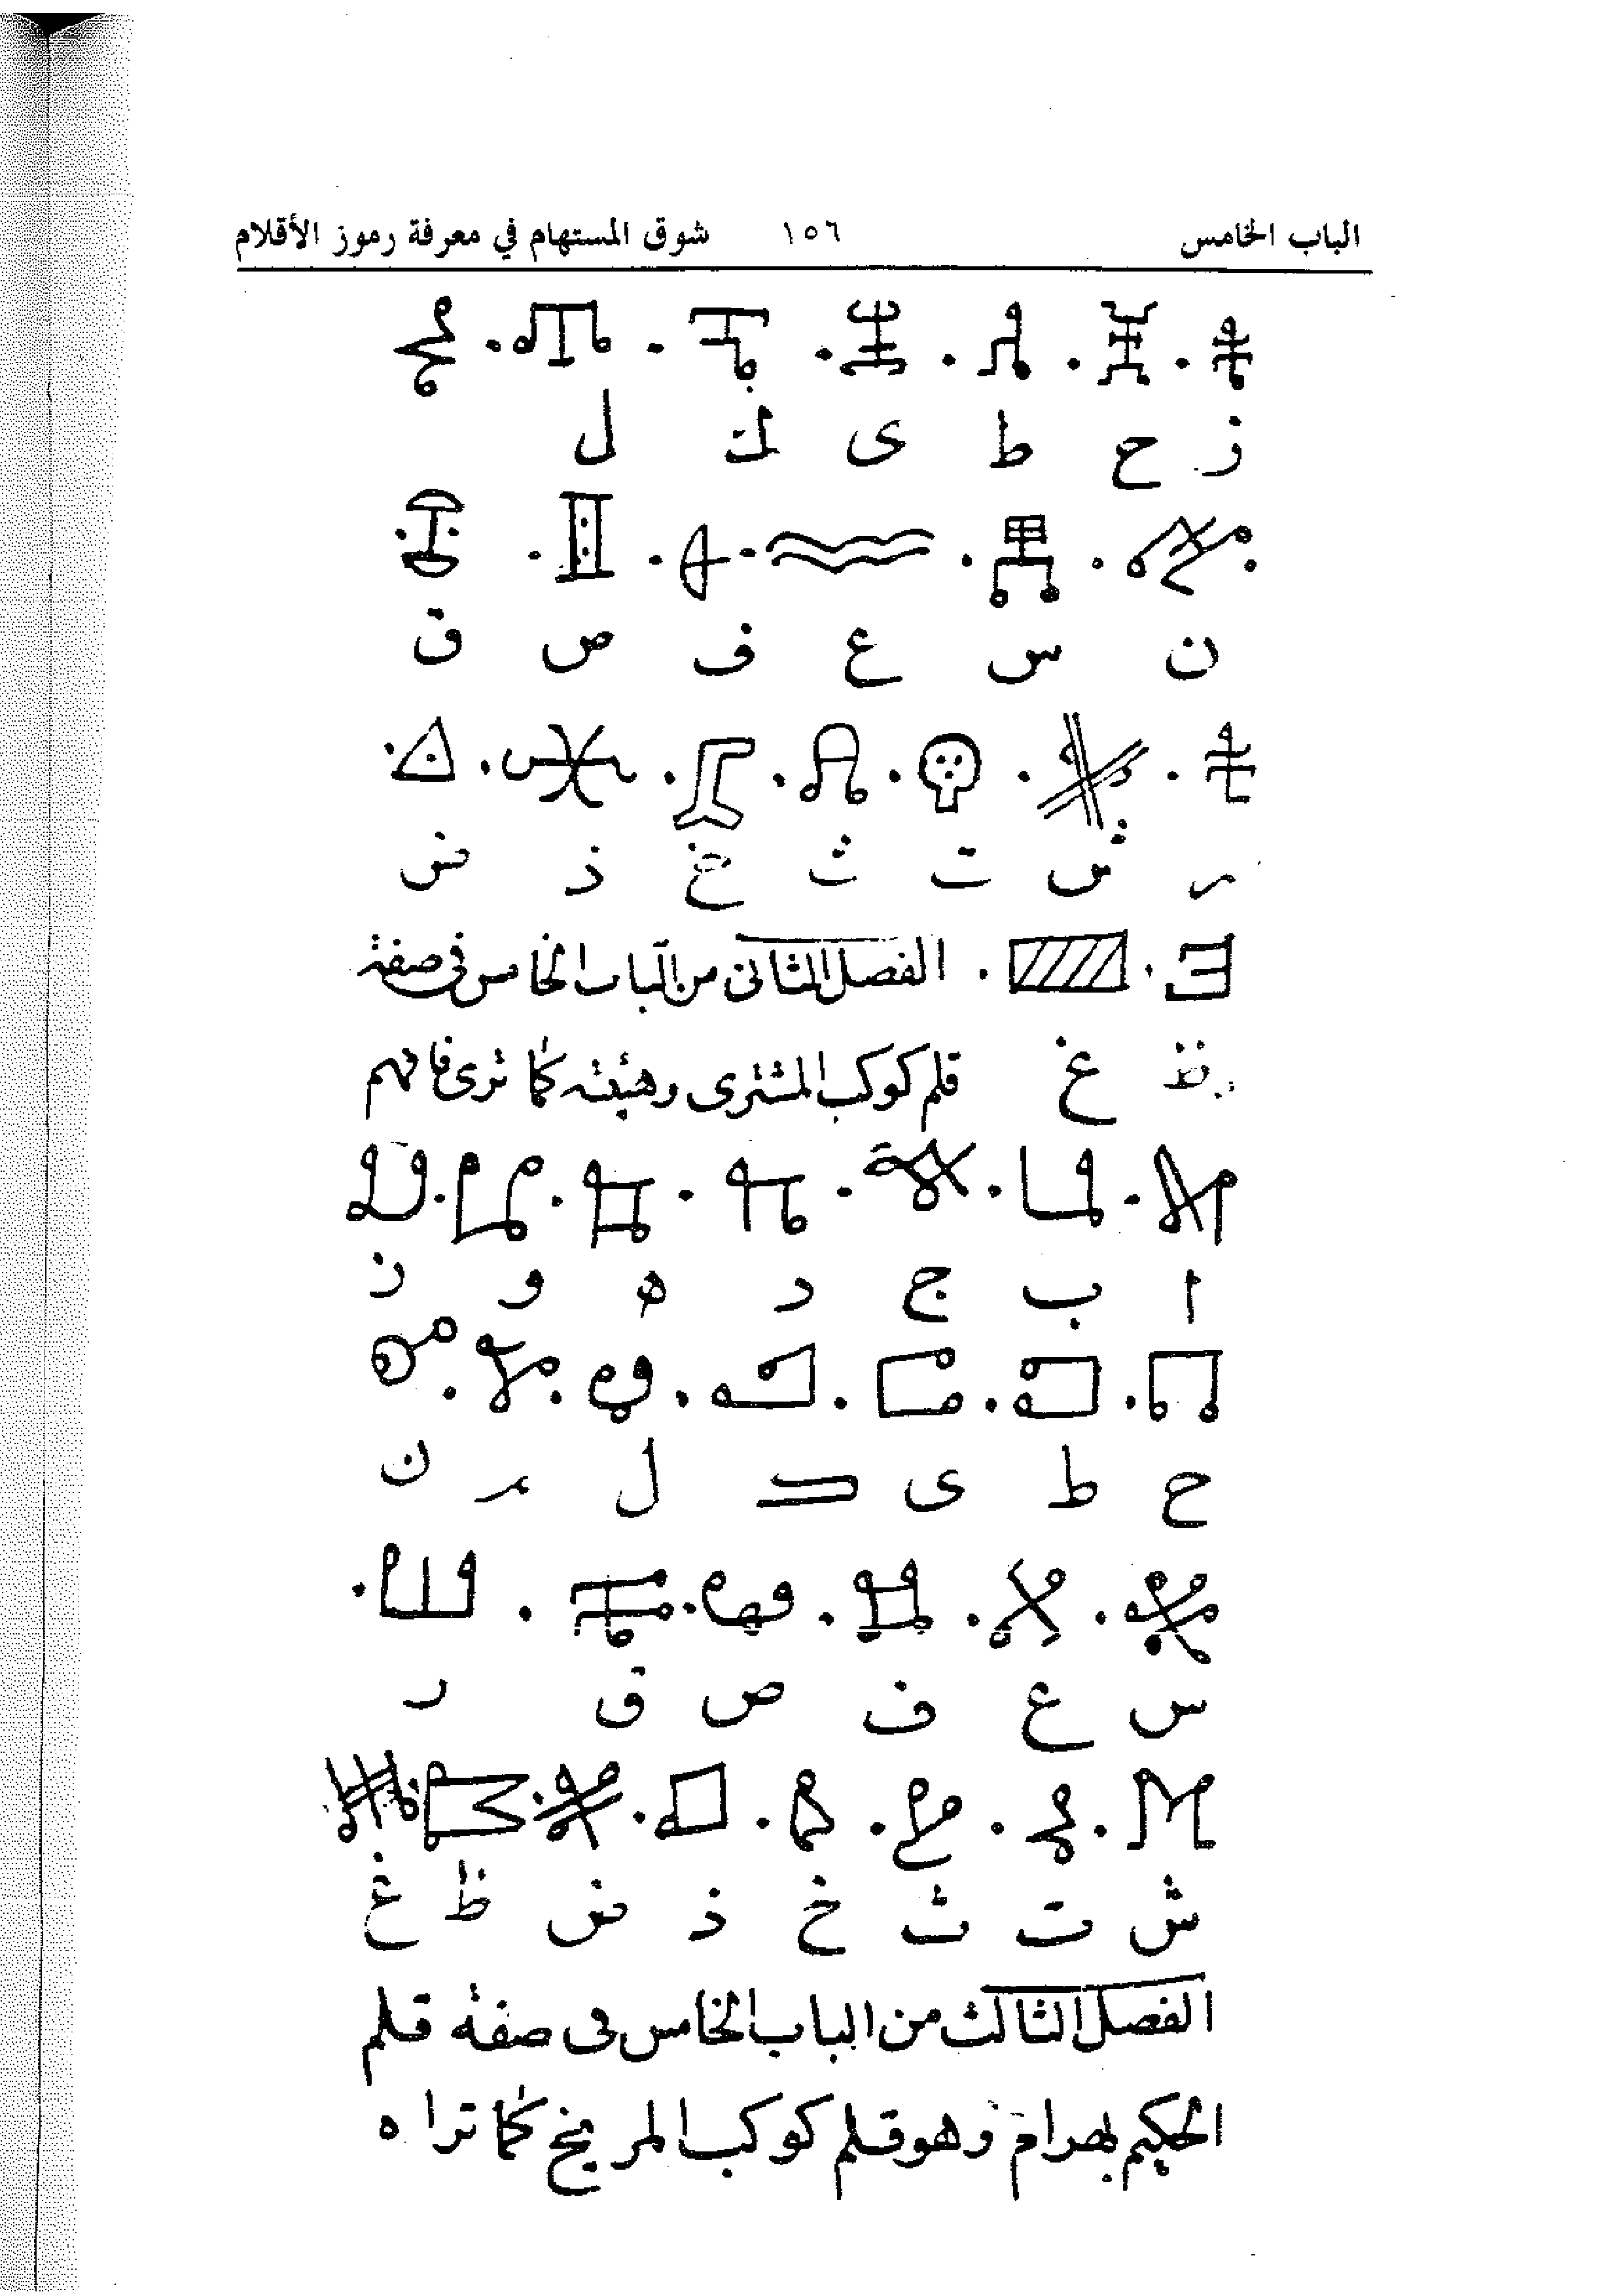 الباب الخامس ١٥٦ شوق المستهام في معرفة رموز الأقلام
ز ح ط ى ك ل
ن س ع ف ص ق
ر ش ت ث خ ذ ض
الفصل الثانى من الباب الخامس فى صفة
ظ غ قلم كوكب المشترى وهيئته كما ترى فافهم
ا ب ج د ه و ز
ح ط ى ك ل م ن
س ع ف ص ق ر
ش ت ث خ ذ ض ظ غ
الفصل الثالث من الباب الخامس فى صفة قلم
الحكيم بهرام وهو قلم كوكب المريخ كما تراه